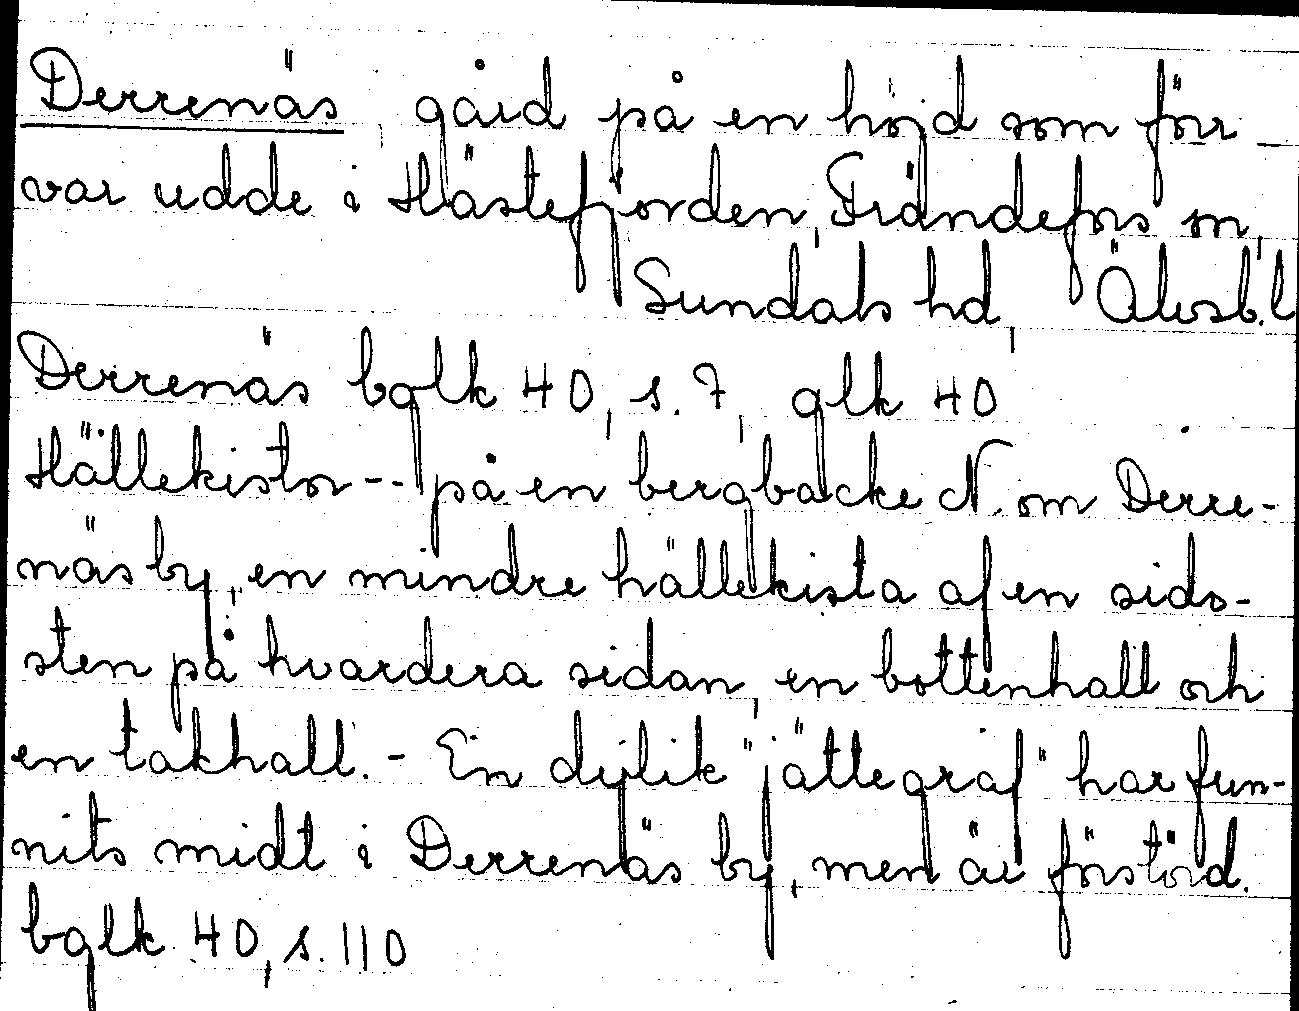 Derrenäs, gård på en höjd som förr
var udde i Hästefjorden, Frändefors sn,
Sundals hd, Älvsb.l
Derrenäs bglk 40, s. 7, glk 40
Hällekistor -- på en bergbacke N. om Derre-
näs by, en mindre hällekista af en sido-
sten på hvardera sidan, en bottenhall och
en takhall. - En dylik "jättegraf" har fun-
nits midt i Derrenäs by, men är förstörd.
bglk 40, s. 110